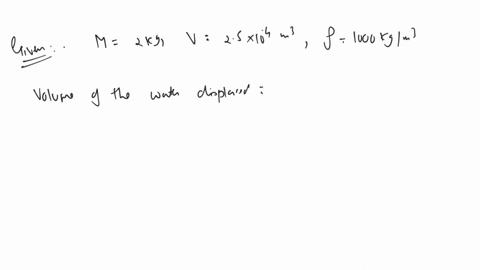 Given:. M = 2 kg, V = 2.5 × 10⁻⁴ m³, ρ = 1000 kg/m³
Volume of the water displaced :